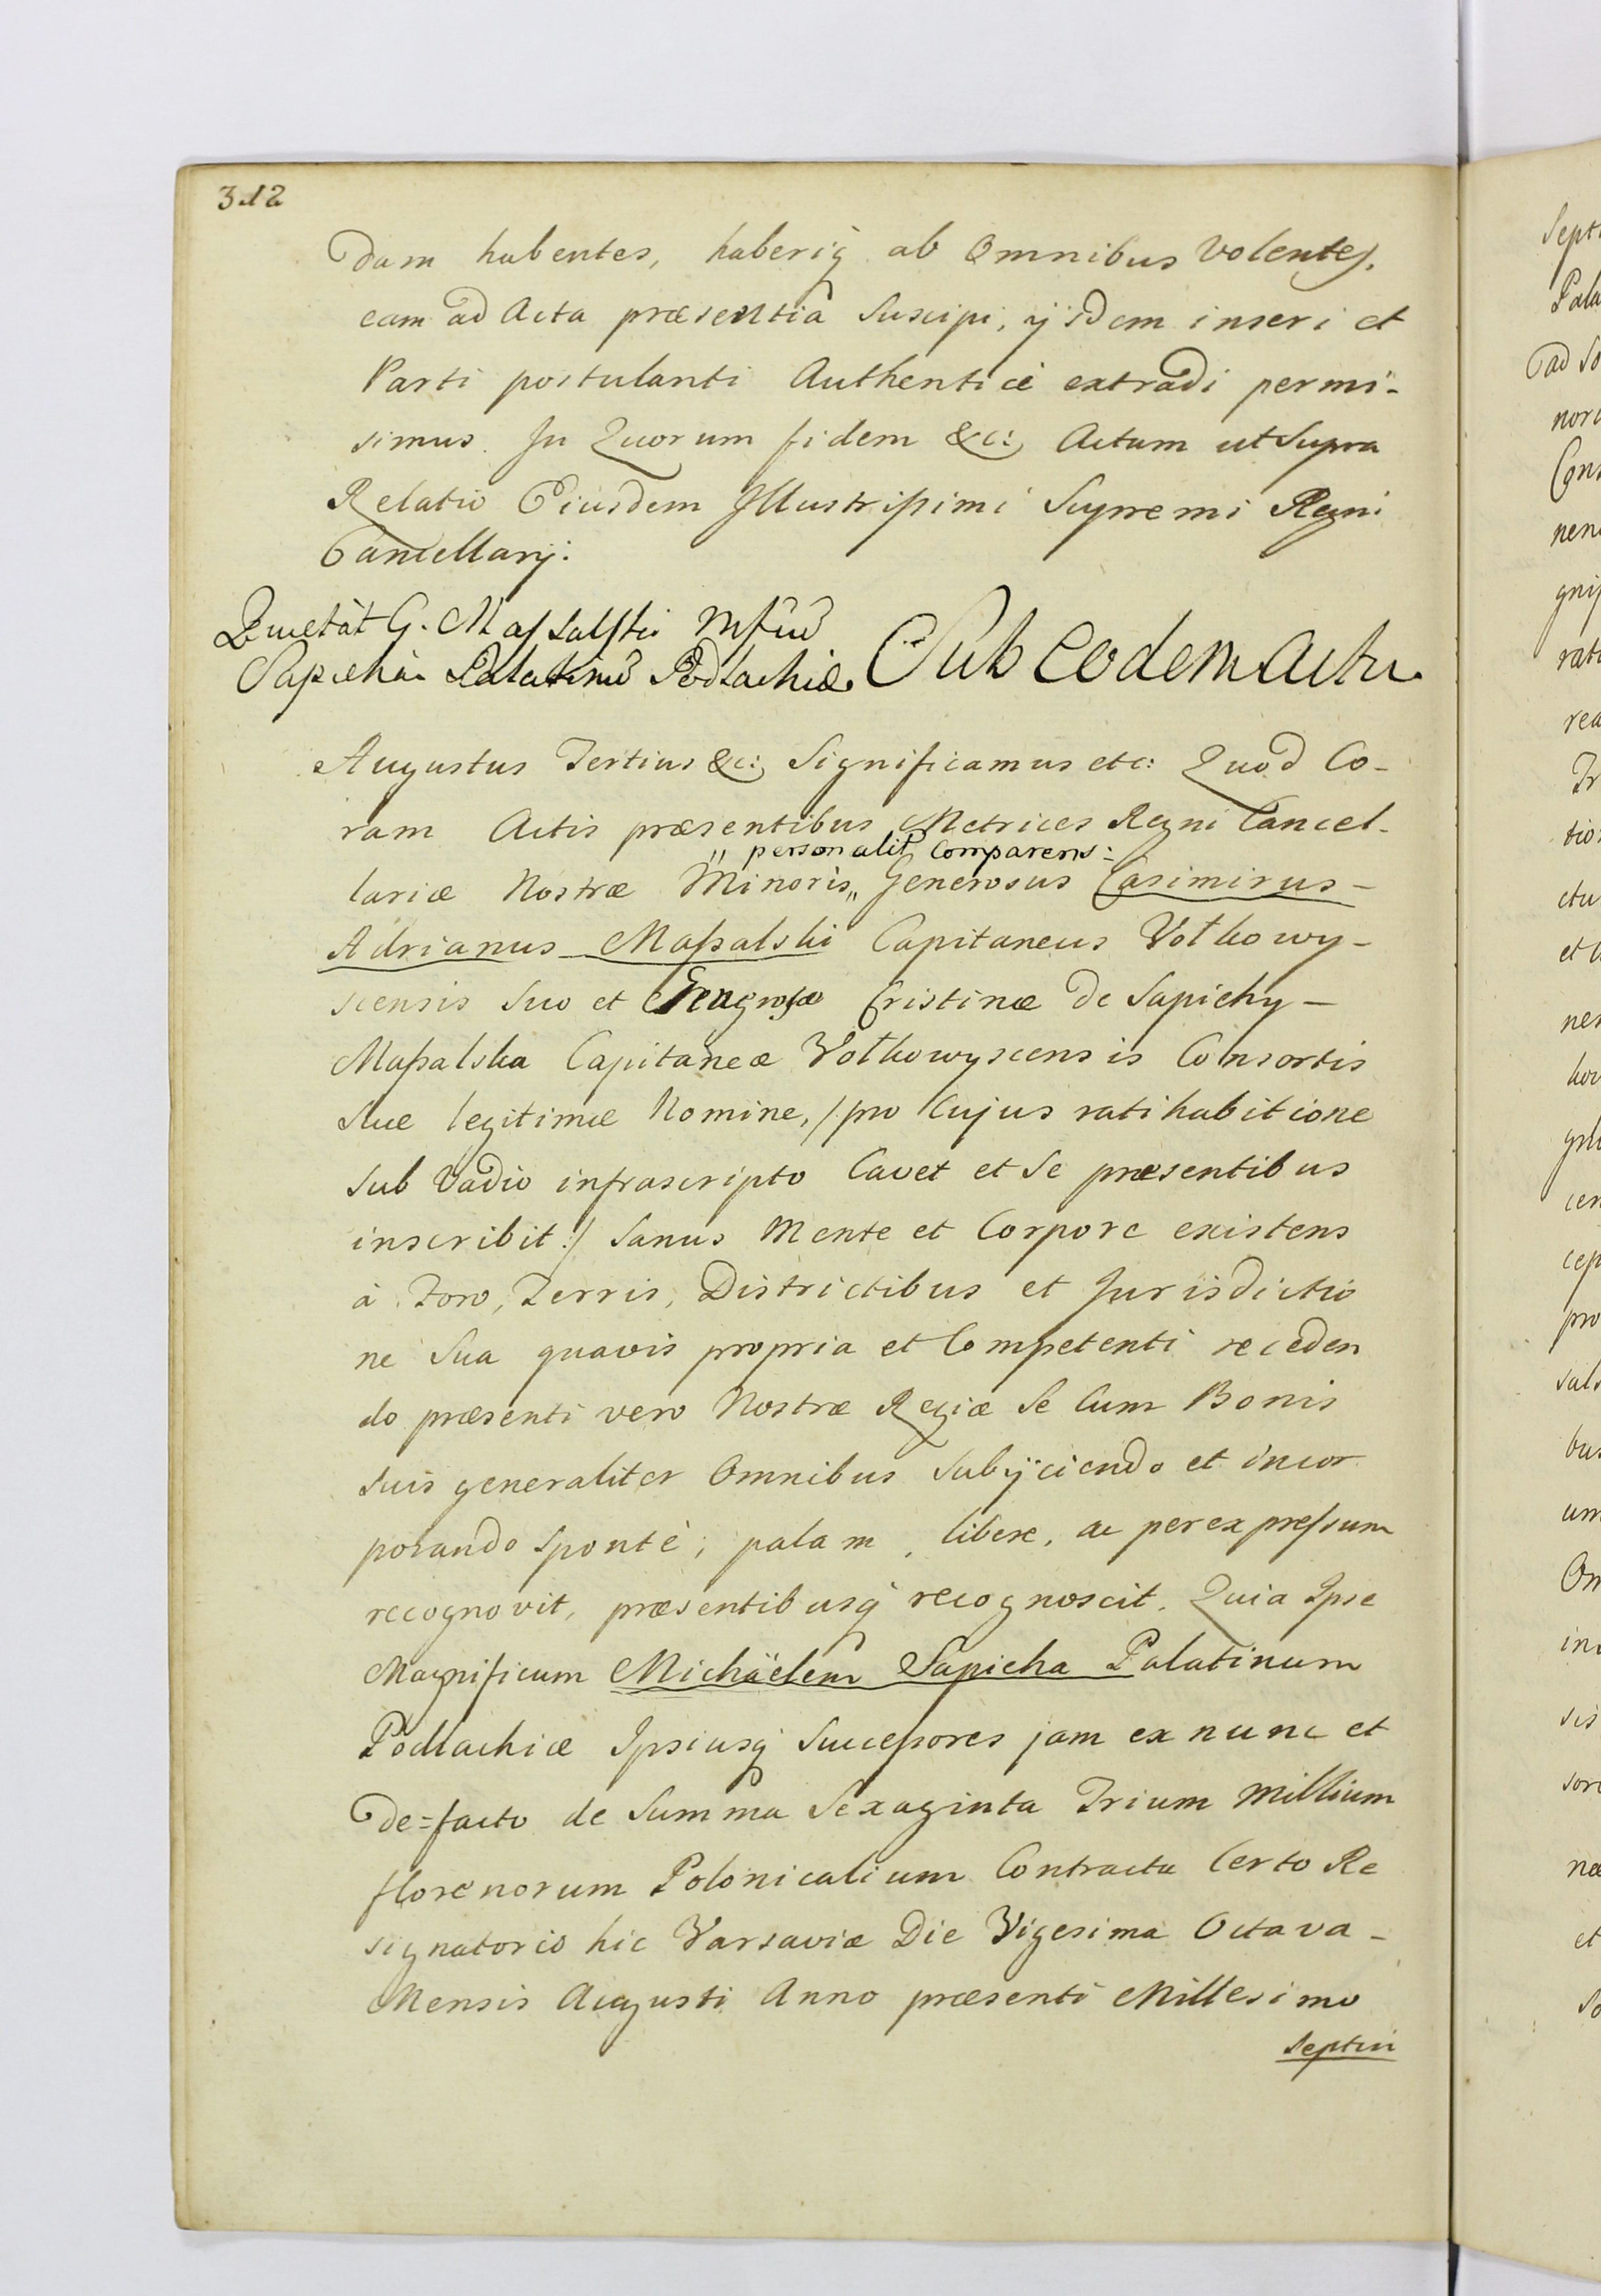 312
dam habentes, haberiq ab Omnibus Volentes.
eam ad Acta præsentia Suscipi, ijsdem inseri et
Parti postulanti Authenticè extradi permi-
simus. In Quorum fidem &c: Actum ut Supra
Relatio Eiusdem Illustrissimi Supremi Regni
Cancellarij:
Quietat G. Massalski Mfcũ
Sapieha Palatinũ Podlachiæ. Sub eodem Actu.
Augustus Tertius &c: Significamus etc: Quod Co-
ram Actis præsentibus Metrices Regni Cancel-
„ personalit Comparens:
lariæ Nostræ Minoris „ Generosus Casimirus-
Adrianus Massalski Capitaneus Vołkowy-
scensis Suo et Cristinæ de Sapiehy-
Massalska Capitaneæ Vołkowyscensis Consortis
Suæ legitimæ Nomine, /:pro Cujus ratihabitione
sub Vadio infrascripto Cavet et Se præsentibus
inscribit:/ Sanus Mente et Corpore existens
à Foro, Terris, Districtibus et Jurisdictio
ne Sua quavis propria et Competenti receden
do præsenti vero Nostræ Regiæ Se Cum Bonis
suis generaliter Omnibus Subijciendo et incor
porando spontè, palam, libere, ac per expressum
recognovit, præsentibusq recognoscit. Quia Ipse
Magnificum Michäelem Sapieha Palatinum
Podlachiæ Ipsiusq Successores jam ex nunc et
de=facto de Summa Sexaginta Trium Millium
florenorum Polonicalium Contractu Certo Re
signatorio hic Varsaviæ Die Vigesima Octava-
Mensis Augusti Anno præsenti Millesimo
Septin